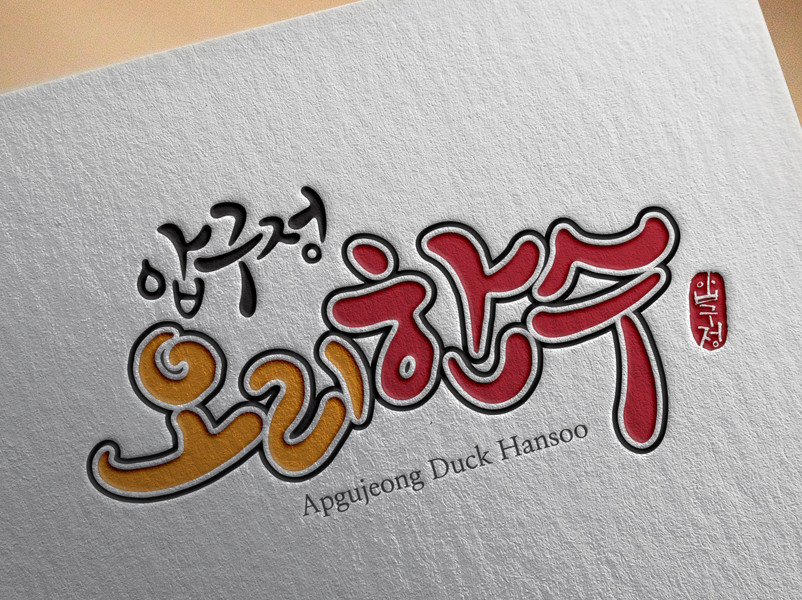 압구정
오리한수
압구정
Apgujeong Duck Hansoo